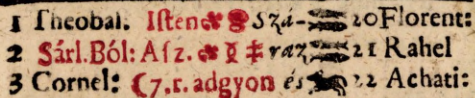 1 Theobal. Isten Szá- 20 Florent:
2 Sárl. Ból: Asz. raz 21 Rahel
3 Cornel: ☾7.r. adgyon és 22 Achati: